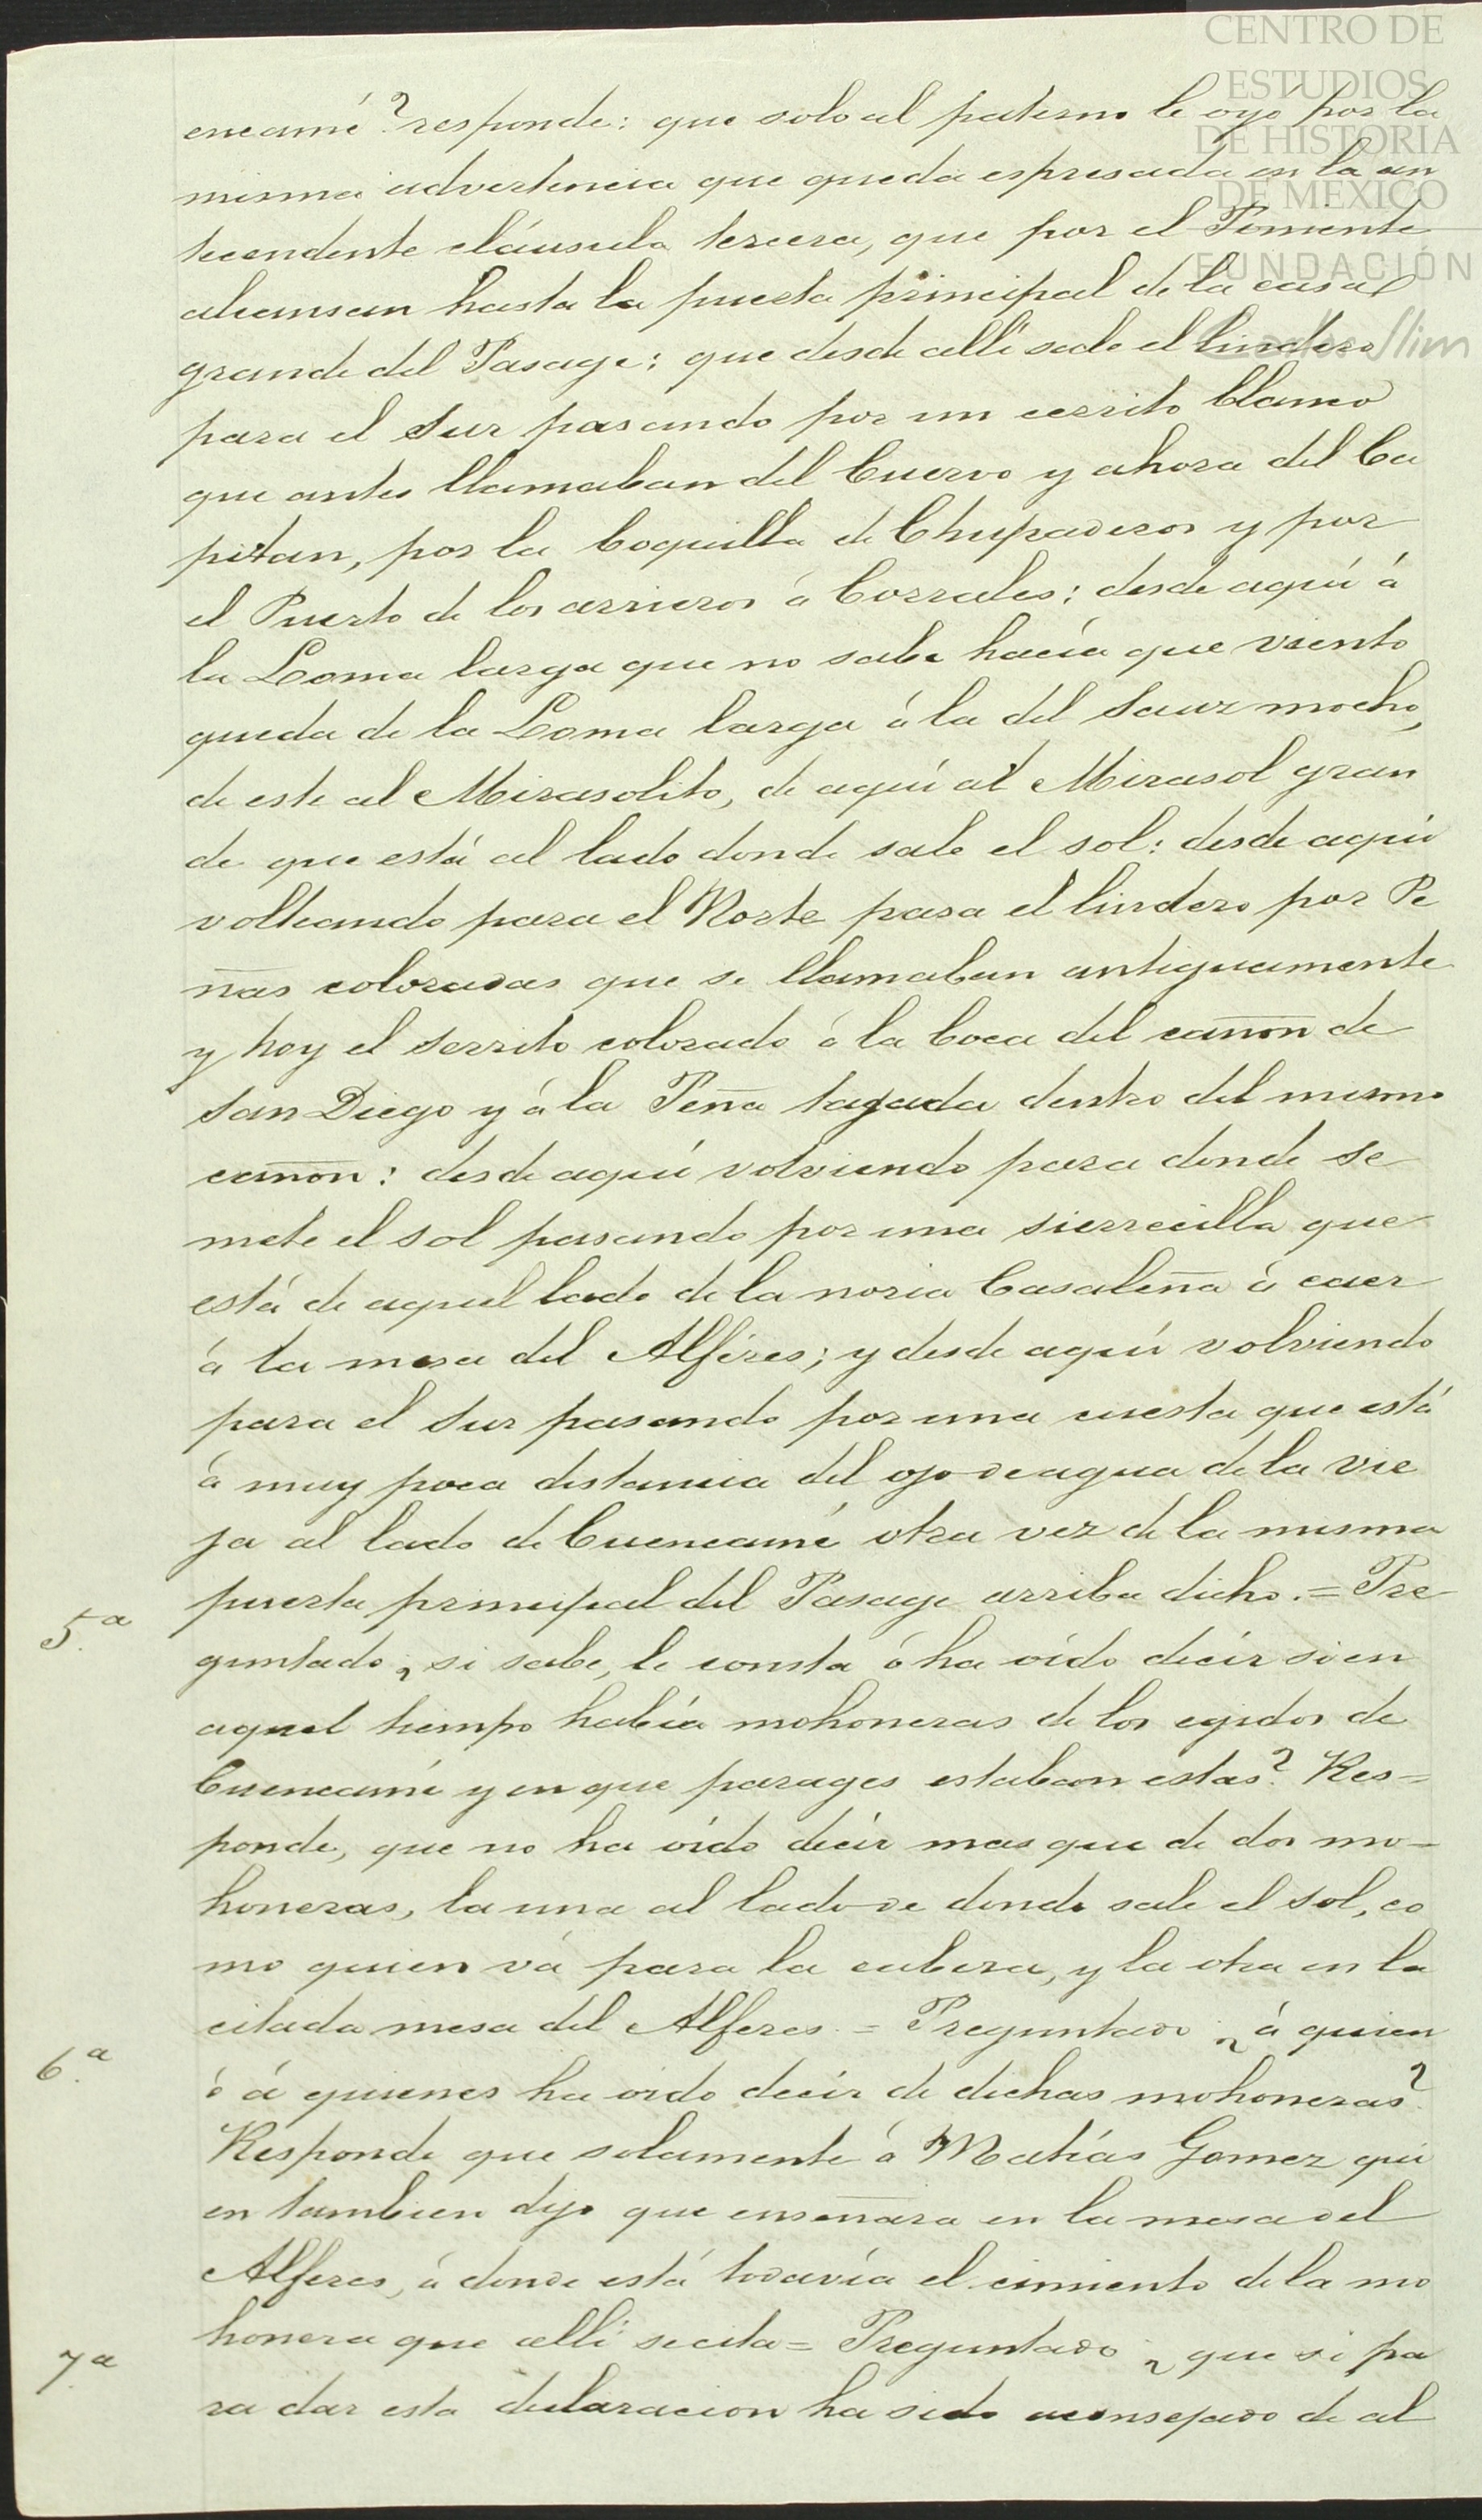 CENTRO DE
ESTUDIOS
DE HISTORIA
DE MEXICO
FUNDACIÓN
Carlos Slim
encamé? responde: que solo al paterno le oyó por la
misma advertencia que queda espresada en la an
tecendente cláusula tercera, que por el Poniente
alcansan hasta la puerta principal de la casa
grande del Pasage; que desde allí sale el lindero
para el Sur pasando por un cerrito blanco
que antes llamaban del Cuervo y ahora del Ca
pitan, por la Boquilla de Chupaderos y por
el Puerto de los arrieros á Corrales; desde aquí á
la Loma larga que no sabe hacía que viento
queda de la Loma larga á la del Sauz mocho,
de este al Mirasolito, de aquí al Mirasol gran
de que está al lado donde sale el sol: desde aquí
volteando para el Norte pasa el lindero por Pe
ñas coloradas que se llamaban antiguamente
y hoy el serrito colorado á la boca del cañon de
San Diego y á la Peña tajada dentro del mismo
cañon: desde aquí volviendo para donde se
mete el sol pasando por una sierrecilla que
está de aquel lado de la noria Casaleña á caer
á la mesa del Alféres; y desde aquí volviendo
para el Sur pasando por una cuesta que está
á muy poca distancia del ojo de agua de la Vie
ja al lado de Cuencamé otra vez de la misma
puerta principal del Pasage arriba dicho. = Pre
5.ª
guntado ¿si sabe, le consta ó ha oído decír si en
aquel tiempo había mohoneras de los egidos de
Cuencamé y en que parages estaban estas? Res=
ponde, que no ha oído decír mas que de dos mo-
honeras, la una al lado de donde sale el sol, co
mo quien vá para la cabeza, y la otra en la
citada mesa del Alferes = Preguntado ¿á quien
6.ª
ó á quienes ha oido decír de dichas mohoneras?
Responde que solamente á Matías Gomez qui
en tambien dijo que enseñara en la mesa del
Alferes, á donde está todavía el cimiento de la mo
honera que allí se cita = Preguntado ¿que si pa
7.ª
ra dar esta declaracion ha sido aconsejado de al